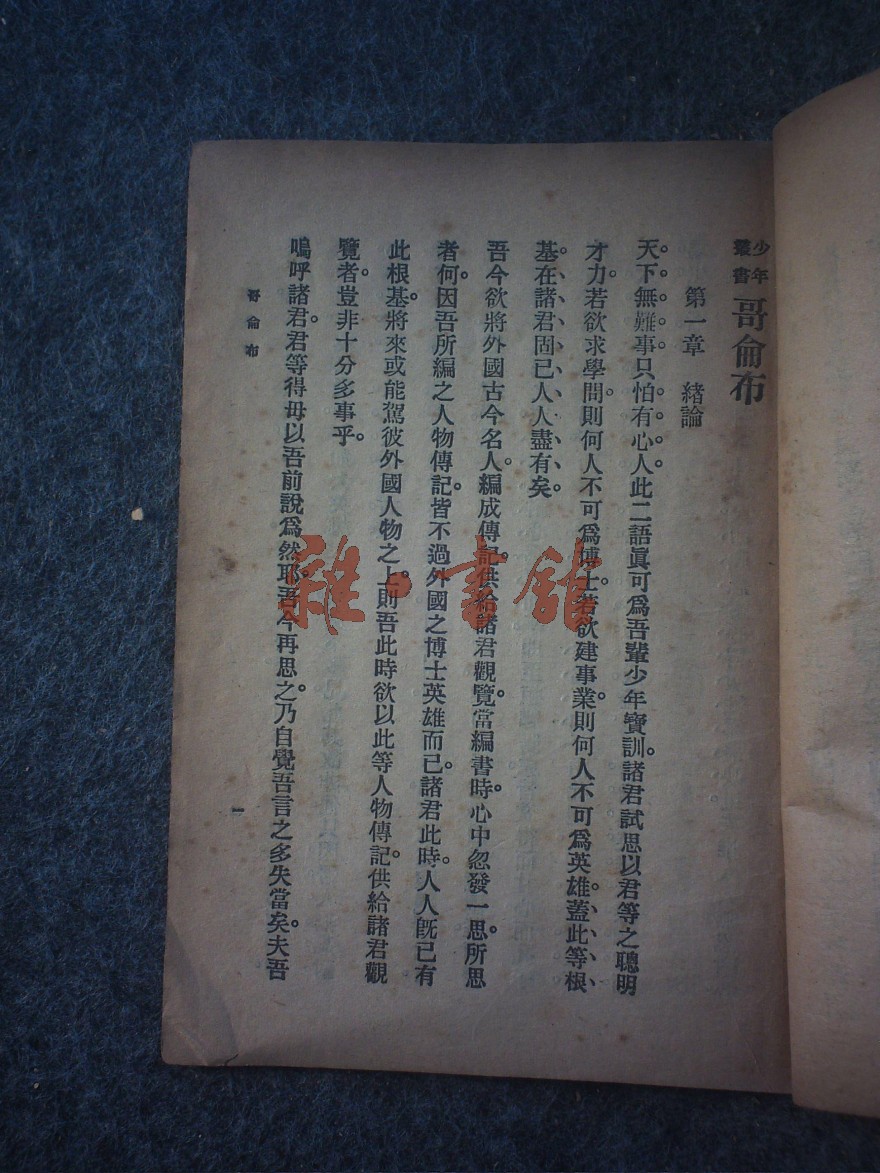 少年叢書 哥侖布
第一章　緒論
天。下。無。難。事。只。怕。有。心。人。此二語眞可爲吾輩少年寶訓。諸君試思以君等之聰明
才力。若欲求學問。則何人不可爲博士。若欲建事業。則何人不可爲英雄。蓋、此、等、根、
基、在、諸、君、固、已、人、人、盡、有、矣。
吾今欲將外國古今名人。編成傳記。供給諸君觀覽。當編書時。心中忽發一思。所思
者何。因吾所編之人物傳記。皆不過外國之博士英雄而已。諸君此時。人人既已有
此根基。將來或能駕彼外國人物之上。則吾此時欲以此等人物傳記。供給諸君觀
覽者。豈非十分多事乎。
嗚呼諸君。君等得毋以吾前說爲然耶。吾今再思之。乃自覺吾言之多失當矣。夫吾
哥侖布
一
雜·書館